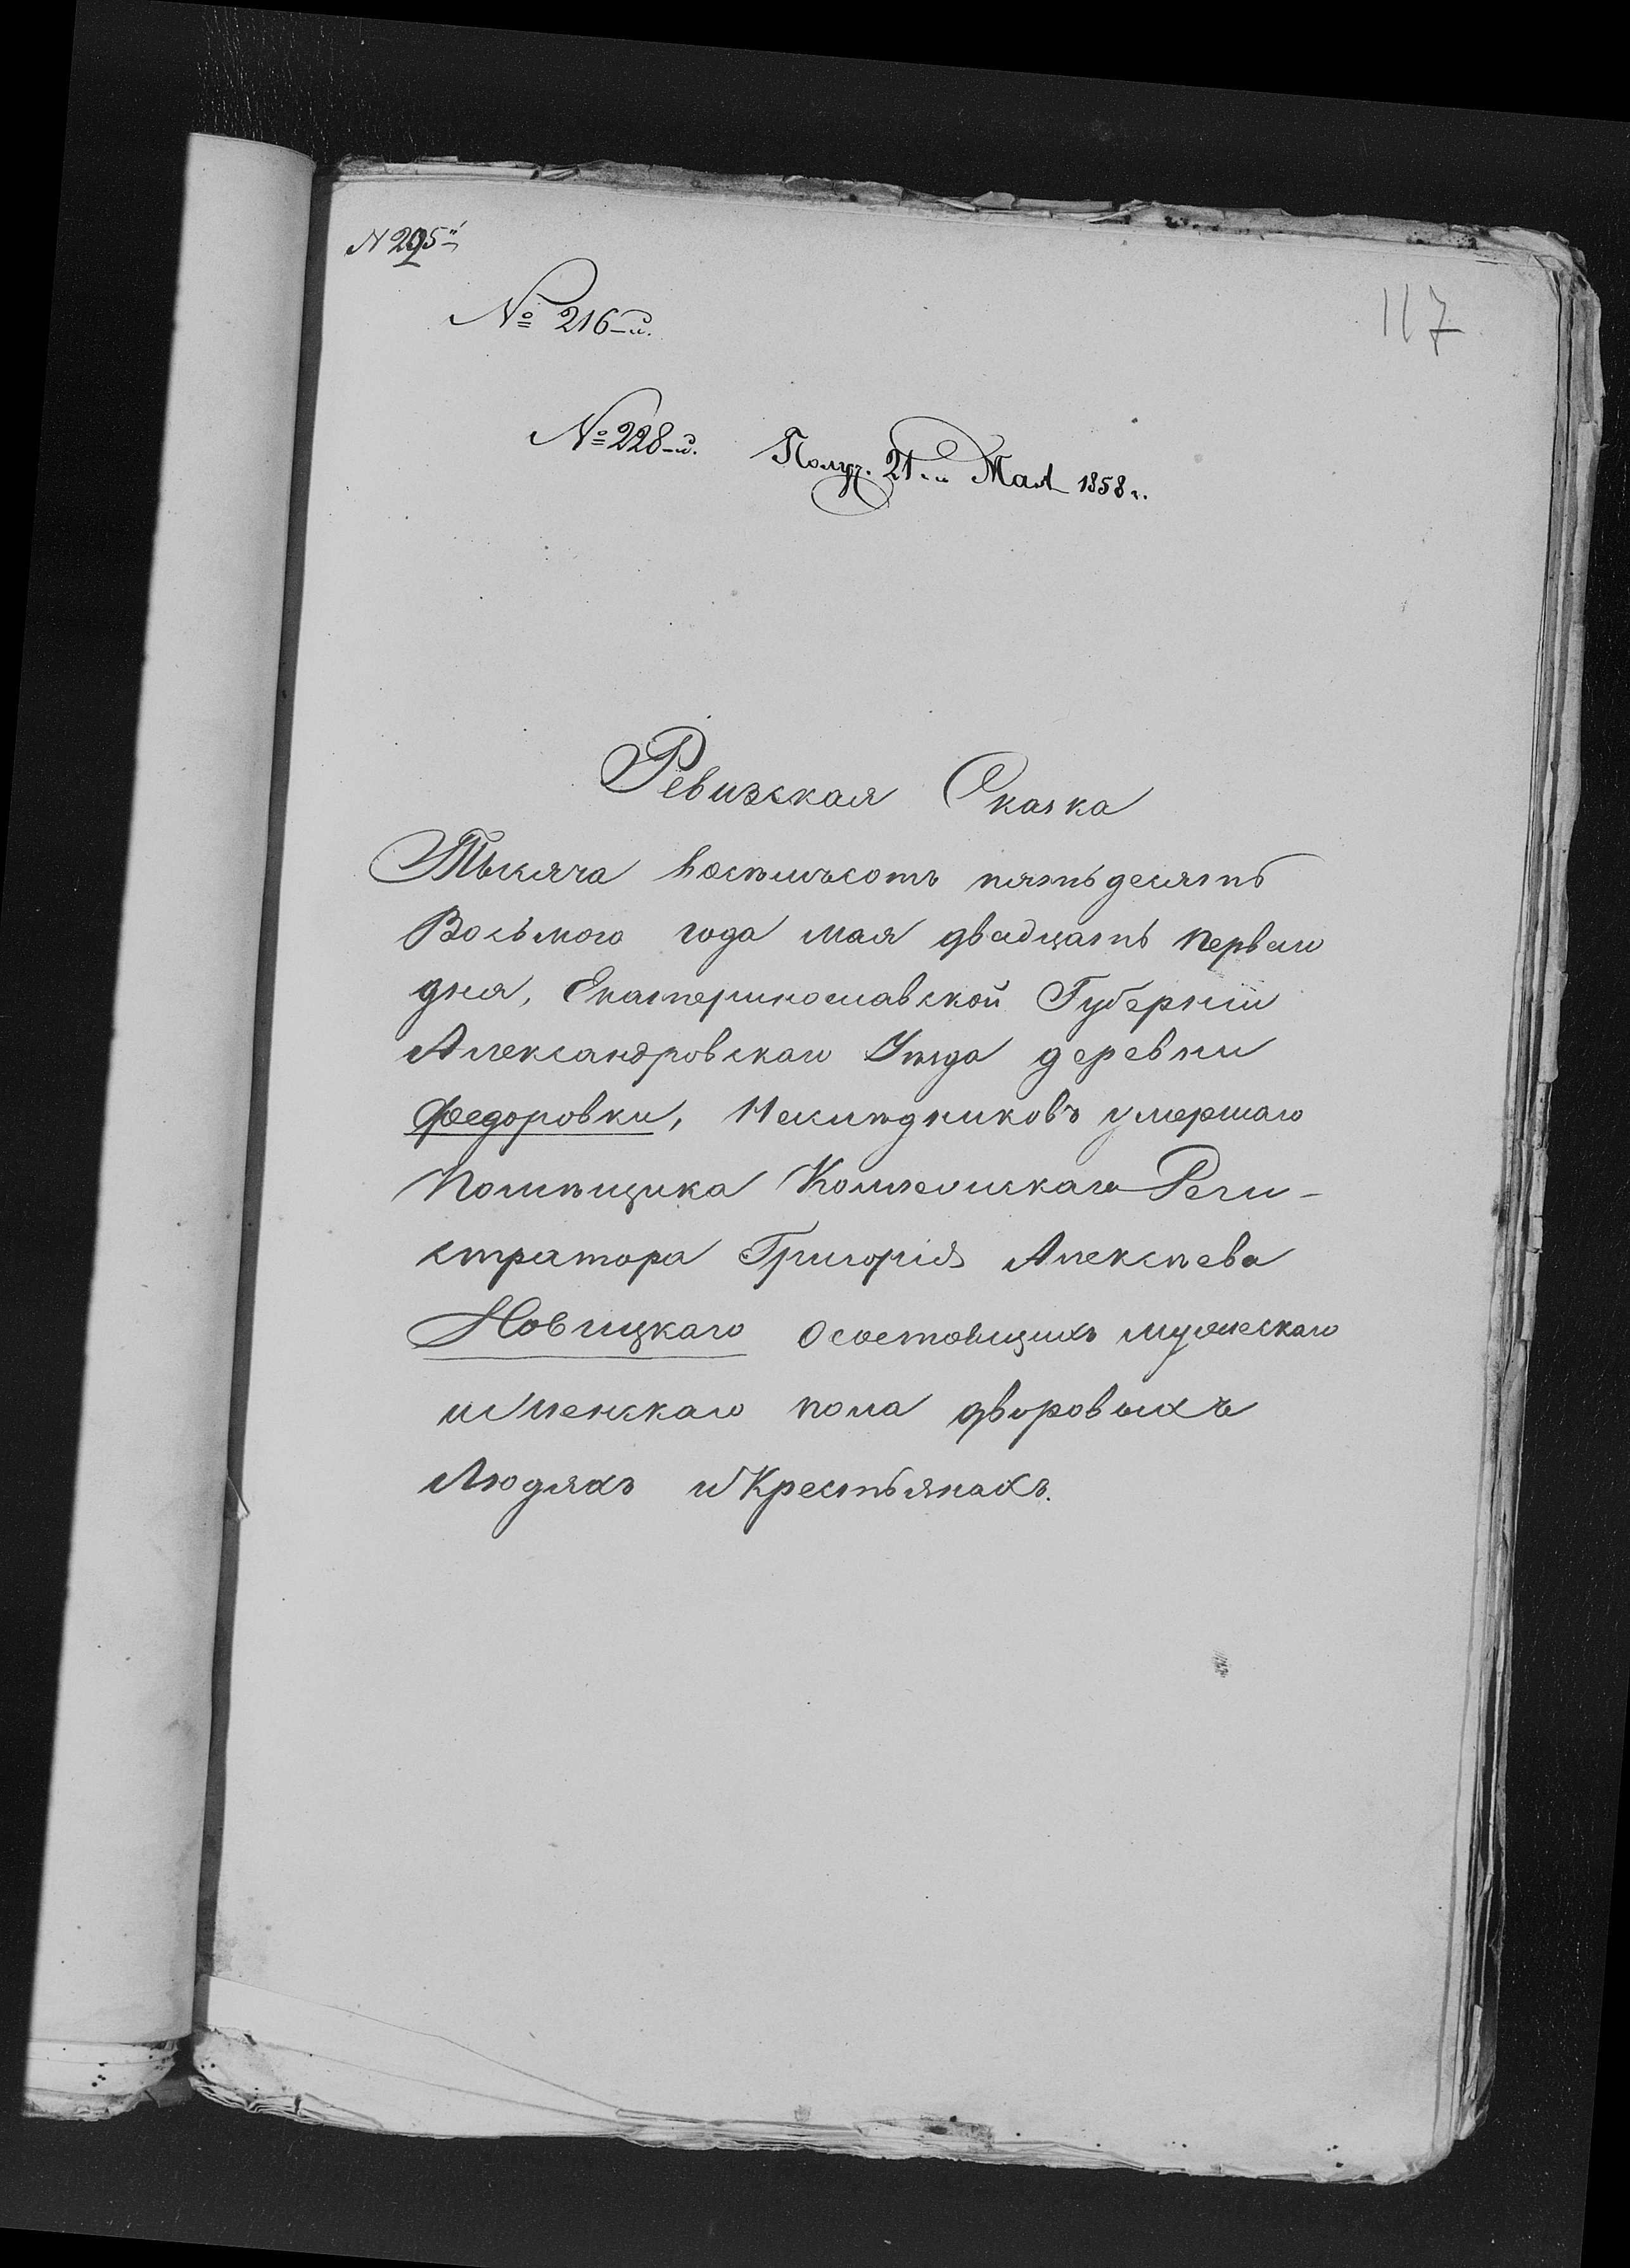 N 295-й
117
№ 216-й.
№ 228-й. Получ. 21-го Мая 1858 г.
Ревизская Сказка
Тысяча восемьсотъ пятьдесятъ
Восьмого года мая двадцать первого
дня, Екатеринославской Губерніи
Александровскаго Уѣзда деревни
Федоровки, Наслѣдниковъ умершаго
Помѣщика Коллежскаго Реги-
стратора Григорія Алексѣева
Новицкаго О состоящихъ мужескаго
и Женскаго пола дворовыхъ
Людяхъ и Крестьянахъ.